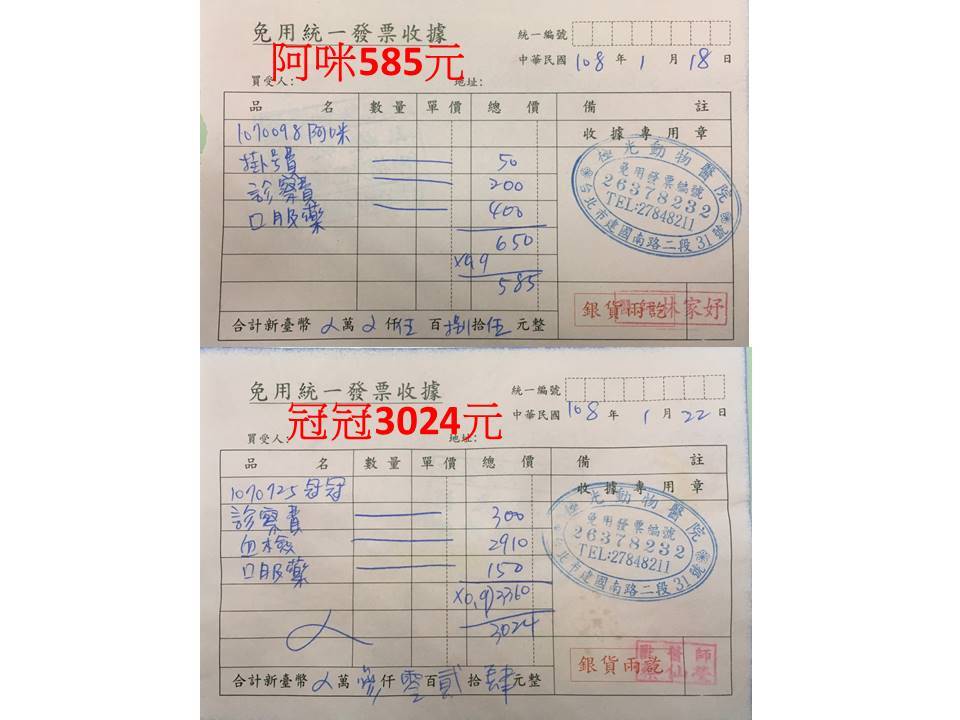 免用統一發票收據
統一編號
中華民國 108 年 1 月 18 日
阿咪585元
買受人:
地址:
品名 數量 單價 總價 備註
1070098 阿咪
收據專用章
掛號費 50
診察費 200
口服藥 400
650
x0.9
585
光動物醫院
免用發票編號
26378232
TEL:27848211
台北市建國南路二段31號
銀貨兩訖
林家妤
合計新臺幣 萬 仟伍百捌拾伍元整
免用統一發票收據
統一編號
中華民國 108 年 1 月 22 日
冠冠3024元
買受人:
地址:
品名 數量 單價 總價 備註
1070725 冠冠
收據專用章
診察費 300
血檢 2910
口服藥 150
x0.9)3360
3024
光動物醫院
免用發票編號
26378232
TEL:27848211
台北市建國南路二段31號
銀貨兩訖
合計新臺幣 萬 仟零百貳拾肆元整